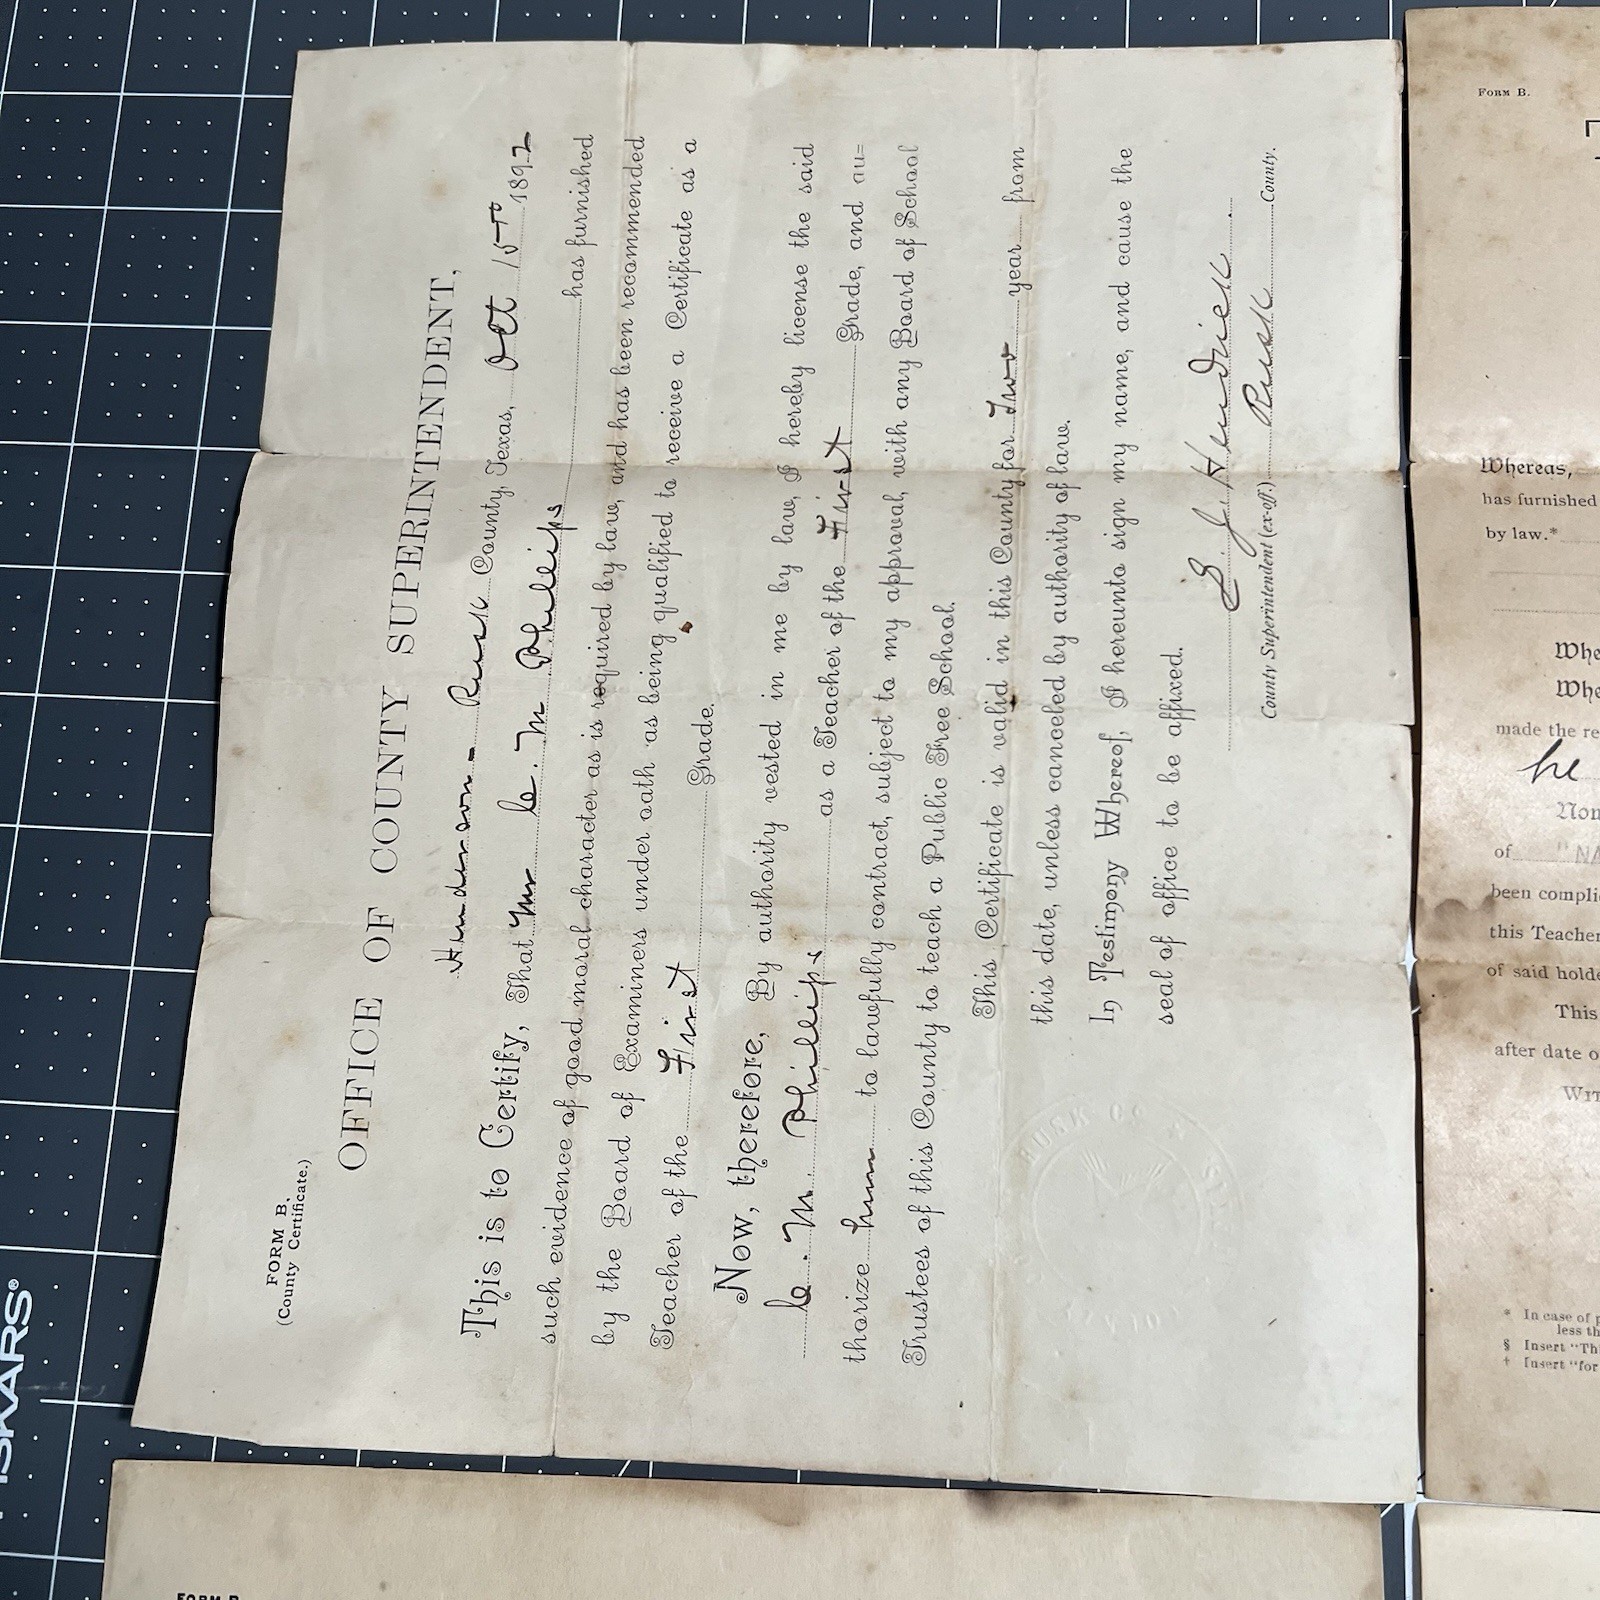 FORM B.
(County Certificate.)
OFFICE OF COUNTY SUPERINTENDENT,
Henderson - Rusk County, Texas, Oct 15th 1892
This is to Certify, That Mr C. M Phillips has furnished
such evidence of good moral character as is required by law, and has been recommended
by the Board of Examiners under oath as being qualified to receive a Certificate as a
Teacher of the First Grade.
Now, therefore, By authority vested in me by law, I hereby license the said
C. M. Phillips as a Teacher of the First Grade, and au=
thorize him to lawfully contract, subject to my approval, with any Board of School
Trustees of this County to teach a Public Free School.
This Certificate is valid in this County for Two year from
this date, unless canceled by authority of law.
In Testimony Whereof, I hereunto sign my name, and cause the
seal of office to be affixed.
S J Hendrick
County Superintendent (ex-off.) Rusk County.
RUSK CO
FORM B.
Whereas,
has furnished
by law.*
Whe
Whe
made the re
he
Now
of "NA
been compli
this Teacher
of said holde
This
after date o
WIT
* In case of p
less th
§ Insert "Th
† Insert "for
FORM B
ISKARS®